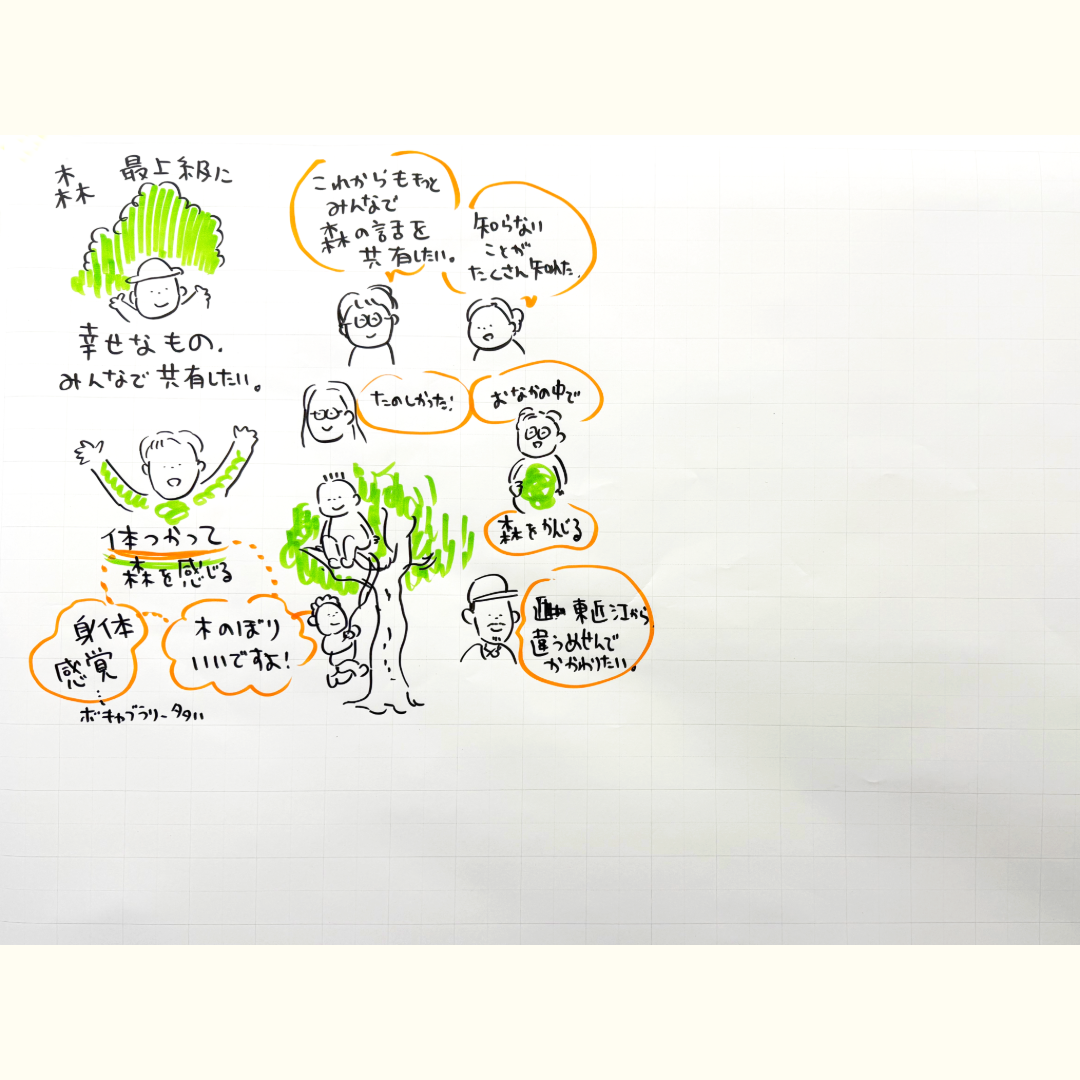 森 最上級に
幸せなもの.
みんなで共有したい。
これからももっと
みんなで
森の話を
共有したい。
知らない
ことが
たくさん知れた.
たのしかった!
おなかの中で
森をかんじる
体つかって
森を感じる
身体
感覚
ボキャブラリータタい
木のぼり
いいですよ!
東近江から
違うめせんで
かかわりたい。